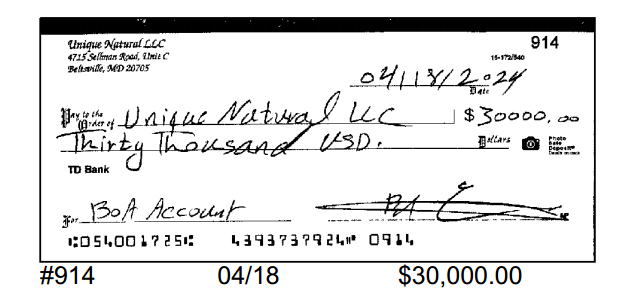 Unique Natural LLC
914
4715 Sellman Road, Unit C
15-172/540
Beltsville, MD 20705
04/18/2024
Date
Pay to the
Order of Unique Natural LLC $30000.00
Thirty Thousand USD. Dollars
Photo
Safe
Deposit®
Details on back
TD Bank
For BoA Account
⑆054001725⑆ 4393737924⑈ 0914
#914 04/18 $30,000.00